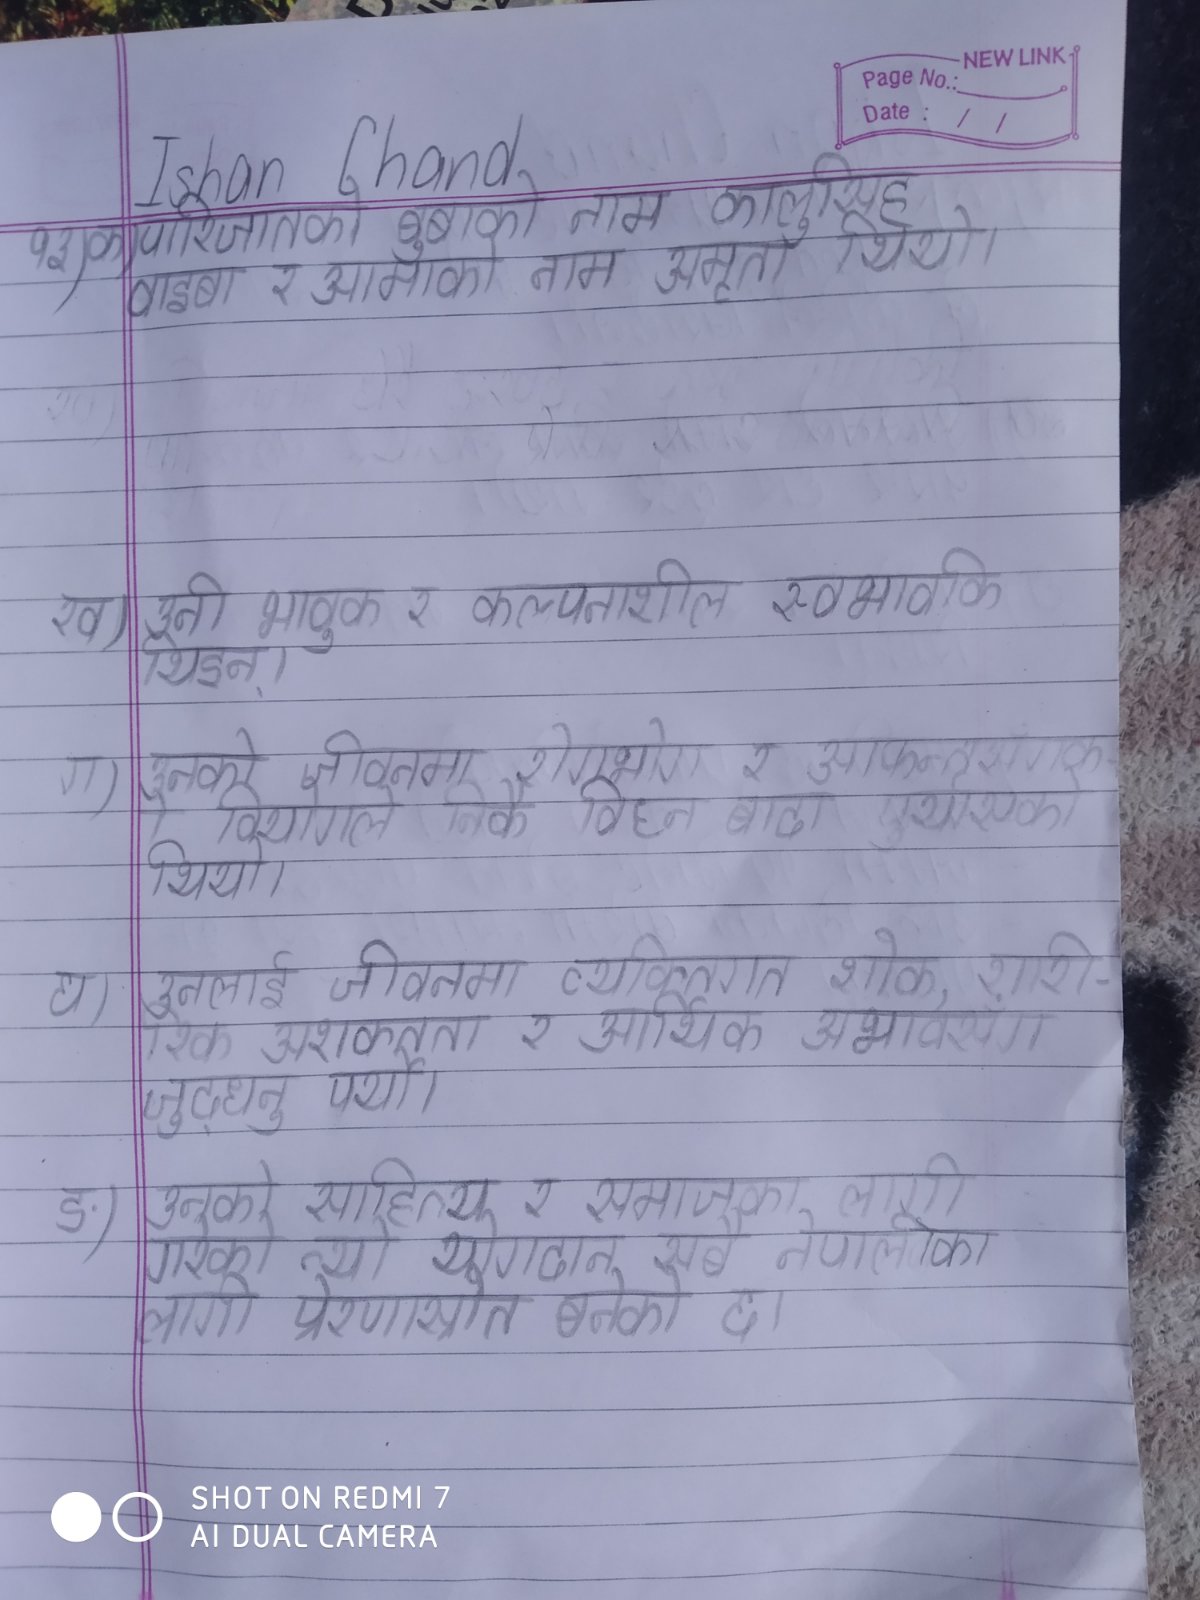 NEW LINK
Page No.:
Date : / /
Ishan Chand
१३)क)पारिजातको बुबाको नाम कालुसिंह
वाइबा र आमाको नाम अमृता थियो।
ख) उनी भावुक र कल्पनाशील स्वभावकि
थिइन्।
ग) उनको जीवनमा रोगभोग र आफन्तसंगक-
ो वियोगले निकै विघ्न बाधा पुर्याएको
थियो।
घ) उनलाई जीवनमा व्यक्तिगत शोक, शारी-
रिक अशक्तता र आर्थिक अभावसँग
जुद्धनु पर्यो।
ङ) उनको साहित्य र समाजका लागी
गरेको त्यो योगदान सबै नेपालीका
लागी प्रेरणास्रोत बनेको छ।
SHOT ON REDMI 7
AI DUAL CAMERA